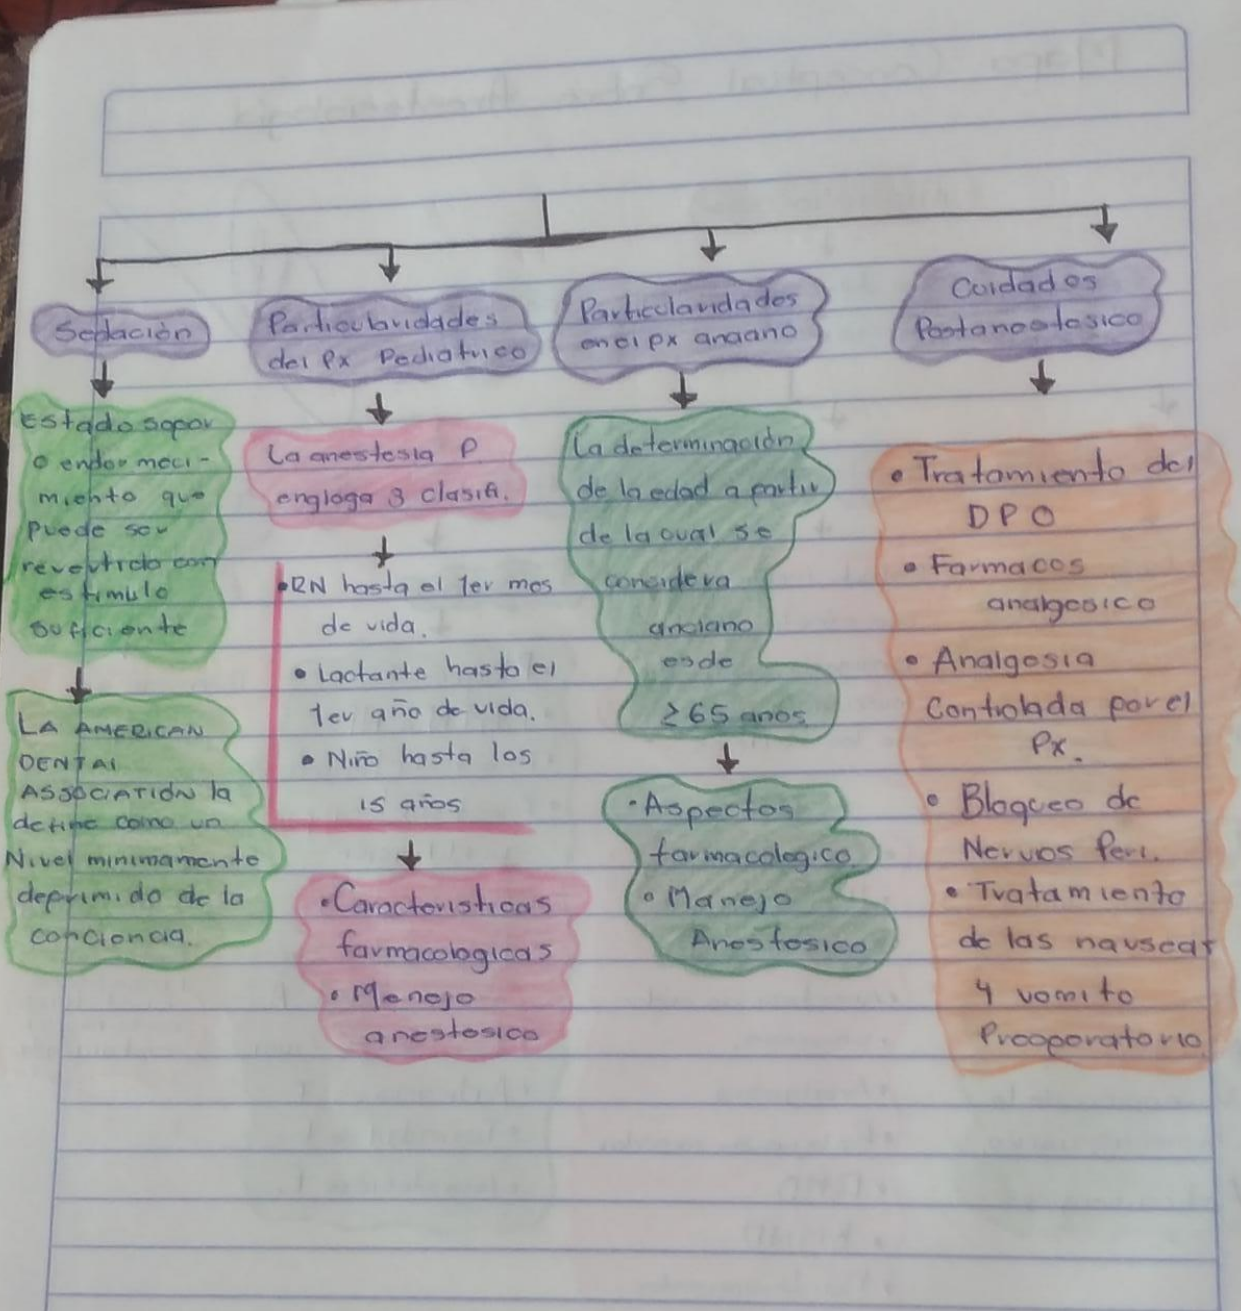 Sedación
Estado sopor
o endormeci-
miento que
puede ser
revertido con
estimulo
suficiente
LA AMERICAN
DENTAL
ASSOCIATION la
define como un
Nivel minimamente
deprimido de la
conciencia.
Particularidades
del Px Pediatrico
La anestesia P
engloga 3 clasifi.
• RN hasta el 1er mes
de vida.
• Lactante hasta el
1er año de vida.
• Niño hasta los
15 años
• Caracteristicas
farmacologicas
• Manejo
anestesico
Particularidades
en el px anciano
La determinación
de la edad a partir
de la cual se
considera
anciano
es de
≥65 anos
• Aspectos
farmacologico
• Manejo
Anestesico
Cuidados
Postanestesico
• Tratamiento del
DPO
• Farmacos
analgesico
• Analgesia
Controlada por el
Px.
• Bloqueo de
Nervos Peri.
• Tratamiento
de las nauseas
y vomito
Preoperatorio